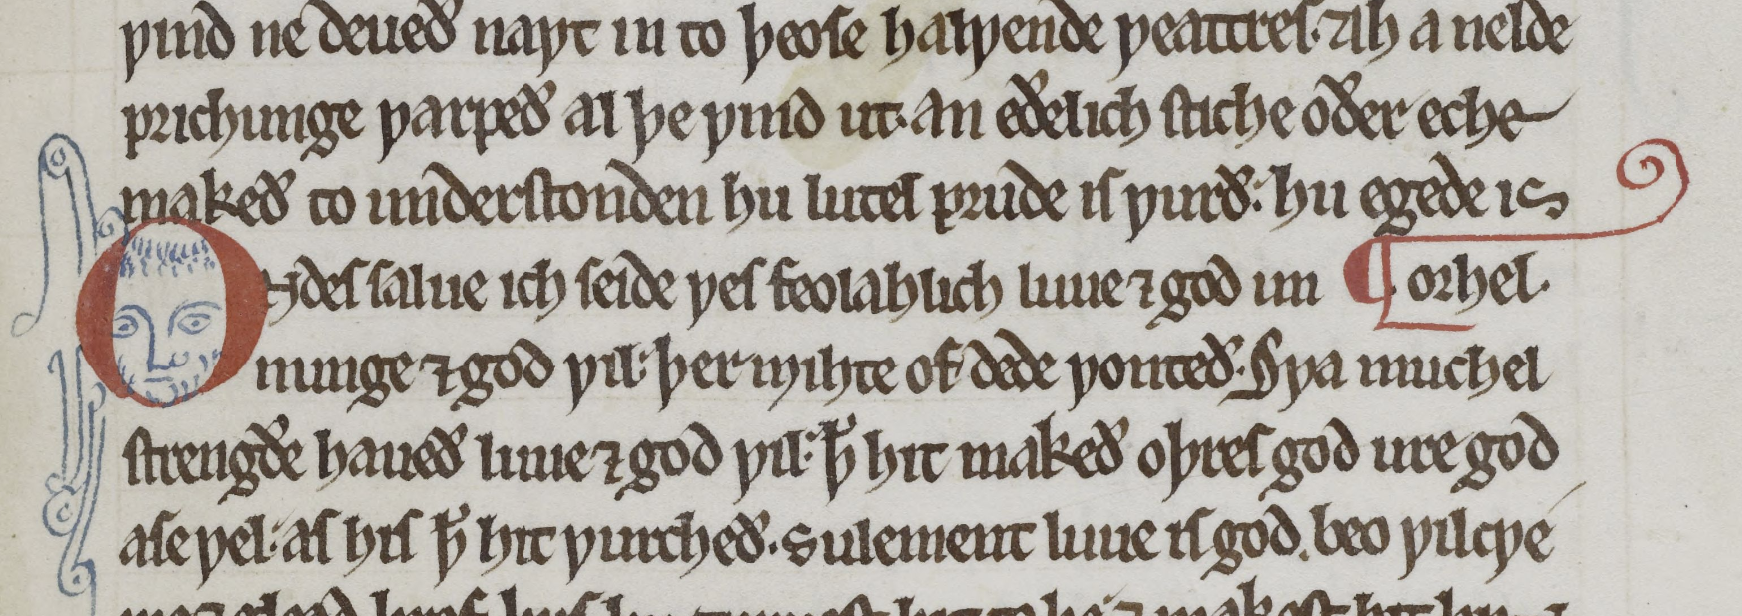 ƿind ne deueð naƿt in to þeose halƿende ƿeattres. Ah a nelde
prichunge ƿarpeð al þe ƿind ut. an eðelich stiche oðer eche
makeð to understonden hu lutel prude is ƿurð: hu egede is
ONdes salue ich seide ƿes feolahlich luue ⁊ god un ¶ orhel.
nunge ⁊ god ƿil: þer mihte of dede ƿonteð. Sƿa muchel
strengðe haueð luue ⁊ god ƿil: ꝥ hit makeð oþres god ure god
ase ƿel: as his ꝥ hit ƿurcheð. sulement luue is god. beo ƿilcƿe